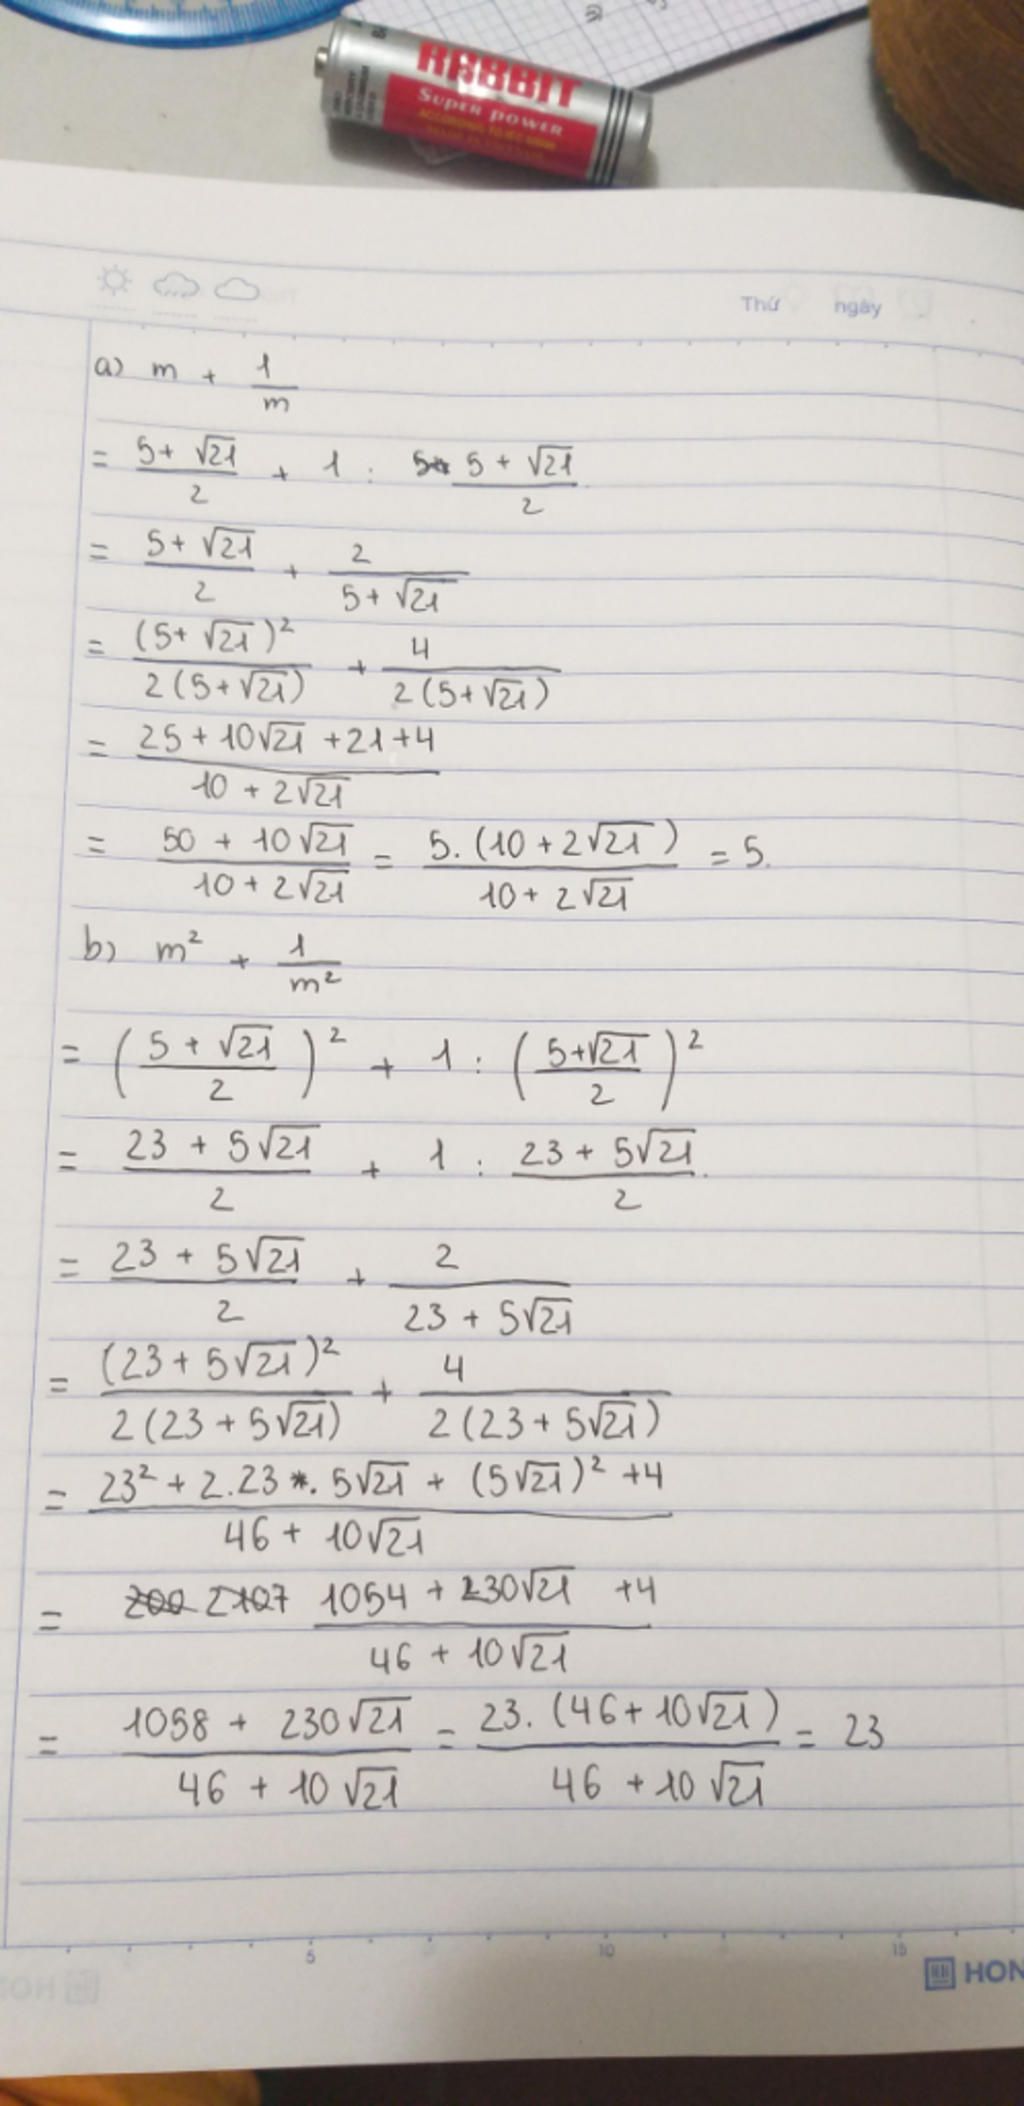 RABBIT
SUPER POWER
Thứ ngày
a) m + 1/m
= (5+√21)/2 + 1 : (5+√21)/2
= (5+√21)/2 + 2/(5+√21)
= (5+√21)²/(2(5+√21)) + 4/(2(5+√21))
= (25+10√21+21+4)/(10+2√21)
= (50+10√21)/(10+2√21) = 5.(10+2√21)/(10+2√21) = 5.
b) m² + 1/m²
= ((5+√21)/2)² + 1 : ((5+√21)/2)²
= (23+5√21)/2 + 1 : (23+5√21)/2.
= (23+5√21)/2 + 2/(23+5√21)
= (23+5√21)²/(2(23+5√21)) + 4/(2(23+5√21))
= (23²+2.23.5√21+(5√21)²+4)/(46+10√21)
= (1054+230√21+4)/(46+10√21)
= (1058+230√21)/(46+10√21) = 23.(46+10√21)/(46+10√21) = 23
5 10 15
HON